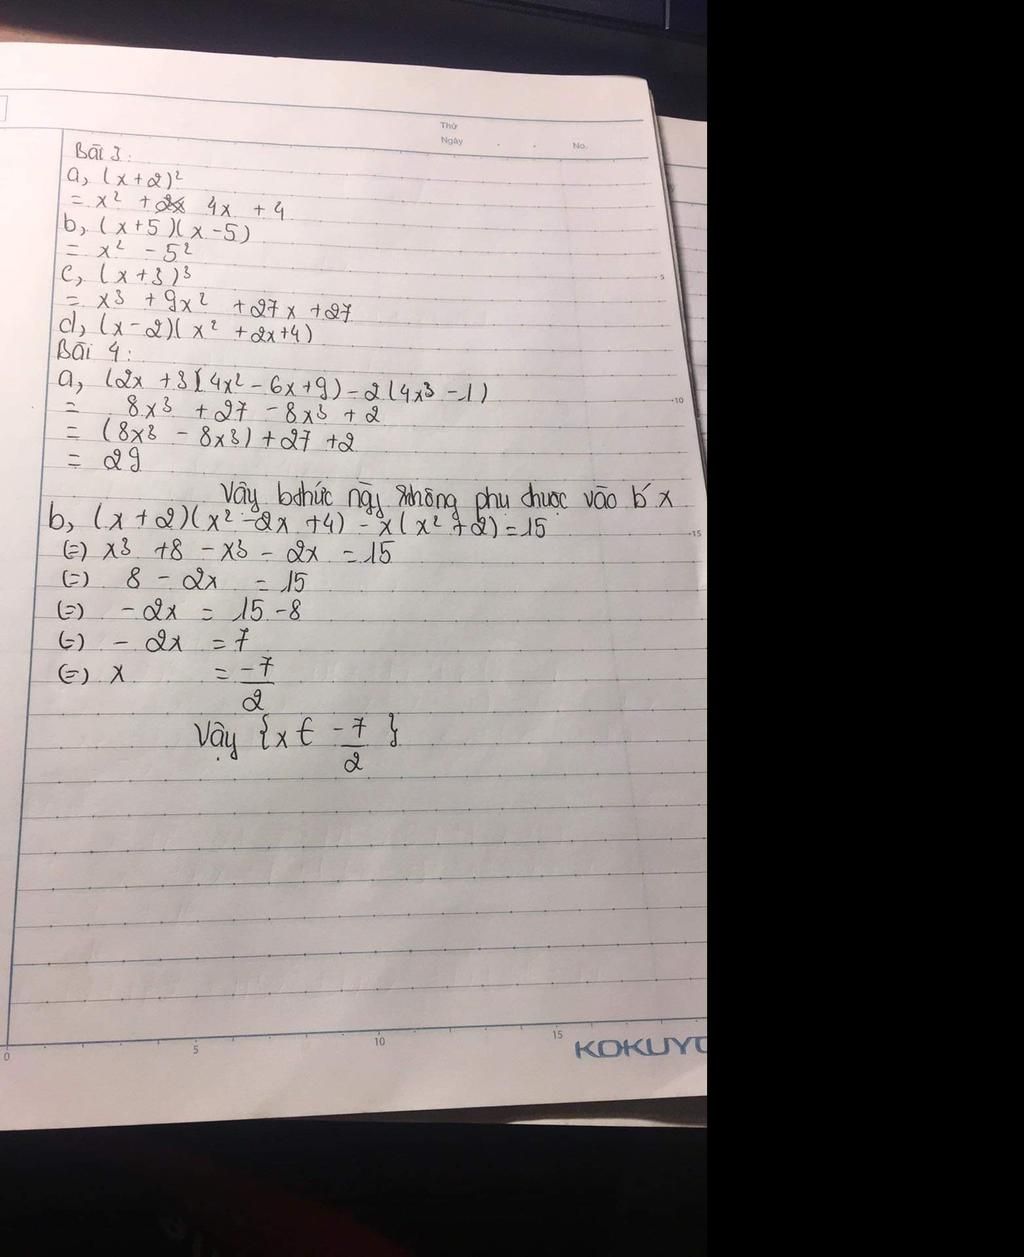 Thứ
Ngày . . No.
Bài 3:
a, (x+2)²
= x² + 4x + 4
b, (x+5)(x-5)
= x² - 5²
c, (x+3)³
= x3 + 9x² + 27x + 27
d, (x-2)(x² + 2x+4)
Bài 4:
a, (2x + 3)(4x² - 6x + 9) - 2(4x³ - 1)
= 8x³ + 27 - 8x³ + 2
= (8x³ - 8x³) + 27 + 2
= 29
Vậy bthức này không phụ thuộc vào b' x
b, (x+2)(x² - 2x + 4) - x(x² + 2) = 15
(=) x³ + 8 - x³ - 2x = 15
(=) 8 - 2x = 15
(=) - 2x = 15 - 8
(=) - 2x = 7
(=) x = -7/2
Vậy {x ∈ -7/2}
5
10
15
0 5 10 15
KOKUYO